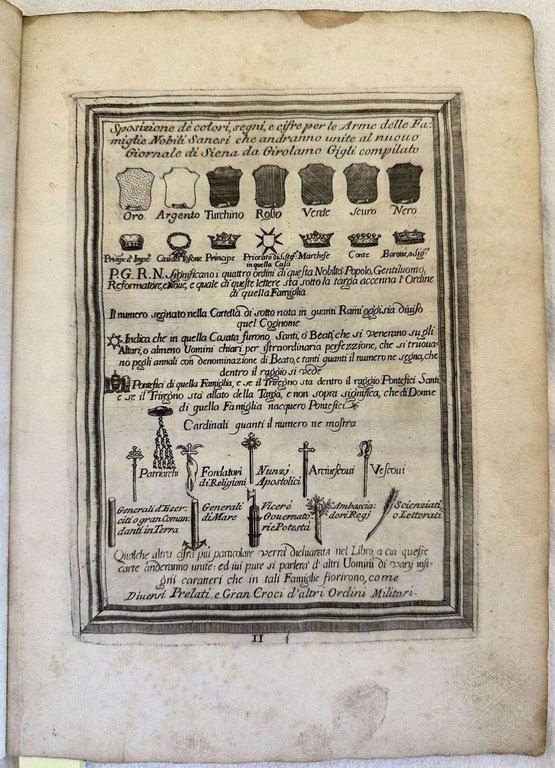 Sposizione dè colori, segni, e cifre per le Arme delle Fa-
miglie Nobili Sanesi che andranno unite al nuouo
Giornale di Siena da Girolamo Gigli compilato
Oro Argento Turchino Rosso Verde scuro Nero
Prinpe d'Impº Principe Priorato di S. Stefº Marchese Conte Barone, o Sigº
in questa Casa
P. G. R. N. Significano i quattro ordini di questa Nobiltà Popolo, Gentiluomo,
Reformatore, e Noue, e quale di queste lettere sta sotto la targa accenna l'Ordine
di quella Famiglia
Il numero segnato nella Cartella di sotto nota in quanti Rami oggi sia diuiso
quel Cognome
Indica che in quella Casata furono Santi, o Beati, che si venerano su gli
Altari, o almeno Uomini chiari per istraordinaria perfezzione, che si truoua-
no negli annali con denominazione di Beato, e tanti quanti il numero ne segna, che
dentro il raggio si vede
Pontefici di quella Famiglia, e se il Triregno sta dentro il raggio Pontefici Santi,
e se il Triregno sta allato della Targa, e non sopra significa, che di Donne
di quella Famiglia nacquero Pontefici
Cardinali quanti il numero ne mostra
Patriarchi Fondatori Nunzj Arciuescoui Vescoui
di Religioni Apostolici
Generali d'Eser- Generali Vicerè Ambascia- Scienziati,
citi o gran Coman di Mare Gouernato- dori Regj o Letterati
danti in Terra ri e Potestà
Qualche altra cifra più particulare verrà dichiarata nel Libro, a cui queste
carte anderanno unite: ed iui pure si parlerà d'altri Uomini di varj insi-
gni caratteri che in tali Famiglie fiorirono, come
Diuersi Prelati, e Gran Croci d'altri Ordini Militari.
II